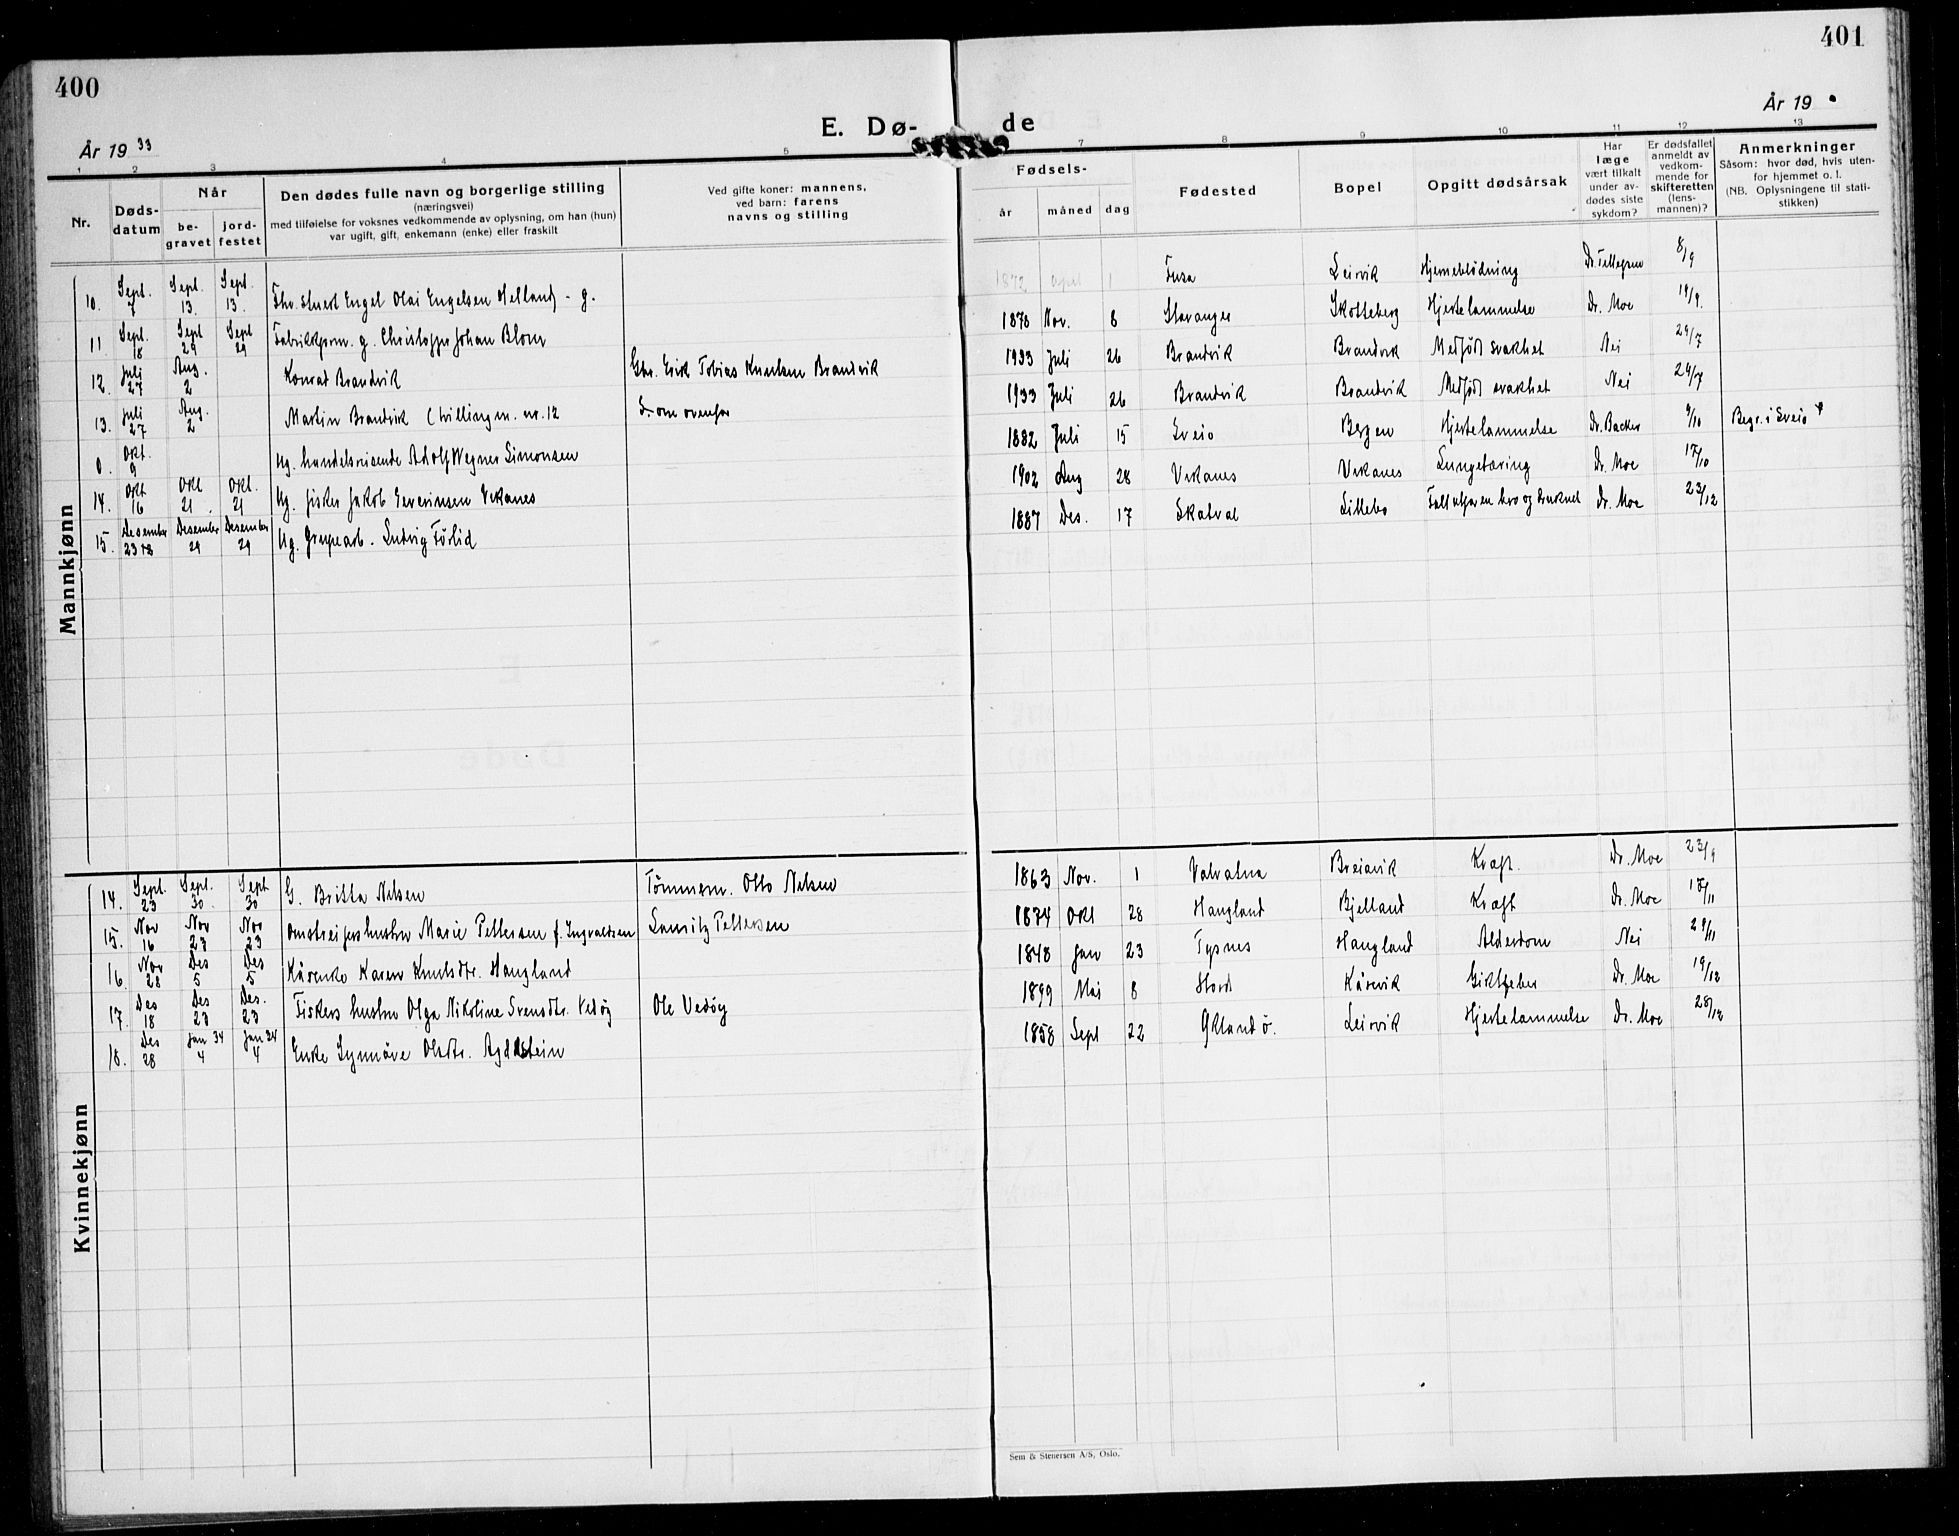 400
401
År 1933
E. Dø-
de
År 19
1 2 3 4 5 7 8 9 10 11 12 13
Nr.
Døds-
datum
Når
be-
gravet
jord-
festet
Den dødes fulle navn og borgerlige stilling
(næringsvei)
med tilføielse for voksnes vedkommende av oplysning, om han (hun)
var ugift, gift, enkemann (enke) eller fraskilt
Ved gifte koner: mannens,
ved barn: farens
navns og stilling
Fødsels-
år måned dag
Fødested
Bopel
Opgitt dødsårsak
Har
læge
vært tilkalt
under av-
dødes siste
sykdom?
Er dødsfallet
anmeldt av
vedkom-
mende for
skifteretten
(lens-
mannen)?
Anmerkninger
Såsom: hvor død, hvis uten-
for hjemmet o. l.
(NB. Oplysningene til stati-
stikken)
Mannkjønn
10. Sept. 7 Sept. 13. Sept. 13. Engel Olai Engelsen Helland - g. 1872 april 1 Fusa Leirvik Hjerneblödning Dr. Tellefsen 8/9
11 Sept. 18 Sept 29 Sept 29 Fabrikkform. g. Christoffer Johan Blom 1878 Nov. 8 Stavanger Skotteberg Hjertelammelse Dr. Moe 19/9.
12. Juli 27 Aug. 2 Konrad Brandvik Gbr. Erik Tobias Knutsen Brandvik 1933 Juli 26 Brandvik Brandvik Medfödt svakhet Nei 29/7
13. Juli 27 Aug. 2 Martin Brandvik (tvilling m. nr. 12 Som ovenfor 1933 Juli 26 Brandvik Brandvik Medfödt svakhet Nei 29/7
0. Okt. 9 Ug. handelsreisende Adolf Wegner Simonsen 1882 Juli 15 Sveio Bergen Hjertelammelse Dr. Backer 9/10 Begr. i Sveio
14. Okt 16 Okt 21 Okt. 21 Ug. fisker Jakob Severinsen Vikanes 1902 Aug 28 Vikanes Vikanes Lungetæring Dr. Moe 17/10
15. Desember 23 Desember 29 Desember 29 Ug. Grupearb. Ludvig Förlid 1887 Des. 17 Skatval Lillebo Falt utfor en bro og druknet Dr. Moe 23/12
Kvinnekjønn
14. Sept. 23 Sept. 30. Sept 30 G. Britta Nilsen Tömmerm. Otto Nilsen 1863 Nov. 1 Valvatna Breiavik Kreft. Dr. Moe 23/9
15. Nov 16 Nov 23 Nov 23 Omstreifers hustru Marie Pettersen f. Ingvaldsen Lauritz Pettersen 1874 Okt 28 Haugland Bjelland Kreft Dr. Moe 18/11
16. Nov 28 Des 5 Des 5 Kårenke Karen Knutsdtr. Haugland 1848 Jan 23 Tysnes Haugland Alderdom Nei 29/11
17. Des 18 Des 23 Des. 23 Fiskers hustru Olga Nikoline Svensdtr. Vedöy Ole Vedöy 1899 Mai 8 Stord Kårevik Giktfeber Dr. Moe 19/12
18. Des 28 Jan 34 4 Jan 34 4 Enke Synnöve Olsdtr. Agdestein 1858 Sept 22 Ökland ö. Leirvik Hjertelammelse Dr. Moe 28/12
Sem & Stenersen A/S, Oslo.